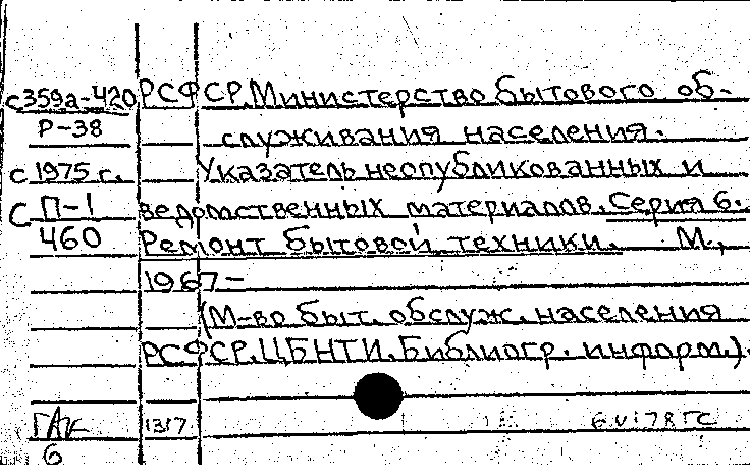 с359а-420 РСФСР. Министерство бытового об-
Р-38 служивания населения.
с 1975 г. Указатель неопубликованных и
С П-1 ведомственных материалов. Серия 6.
460 Ремонт бытовой техники. М.,
1967-
(М-во быт. обслуж. населения
РСФСР. ЦБНТИ. Библиогр. информ.).
1317
6